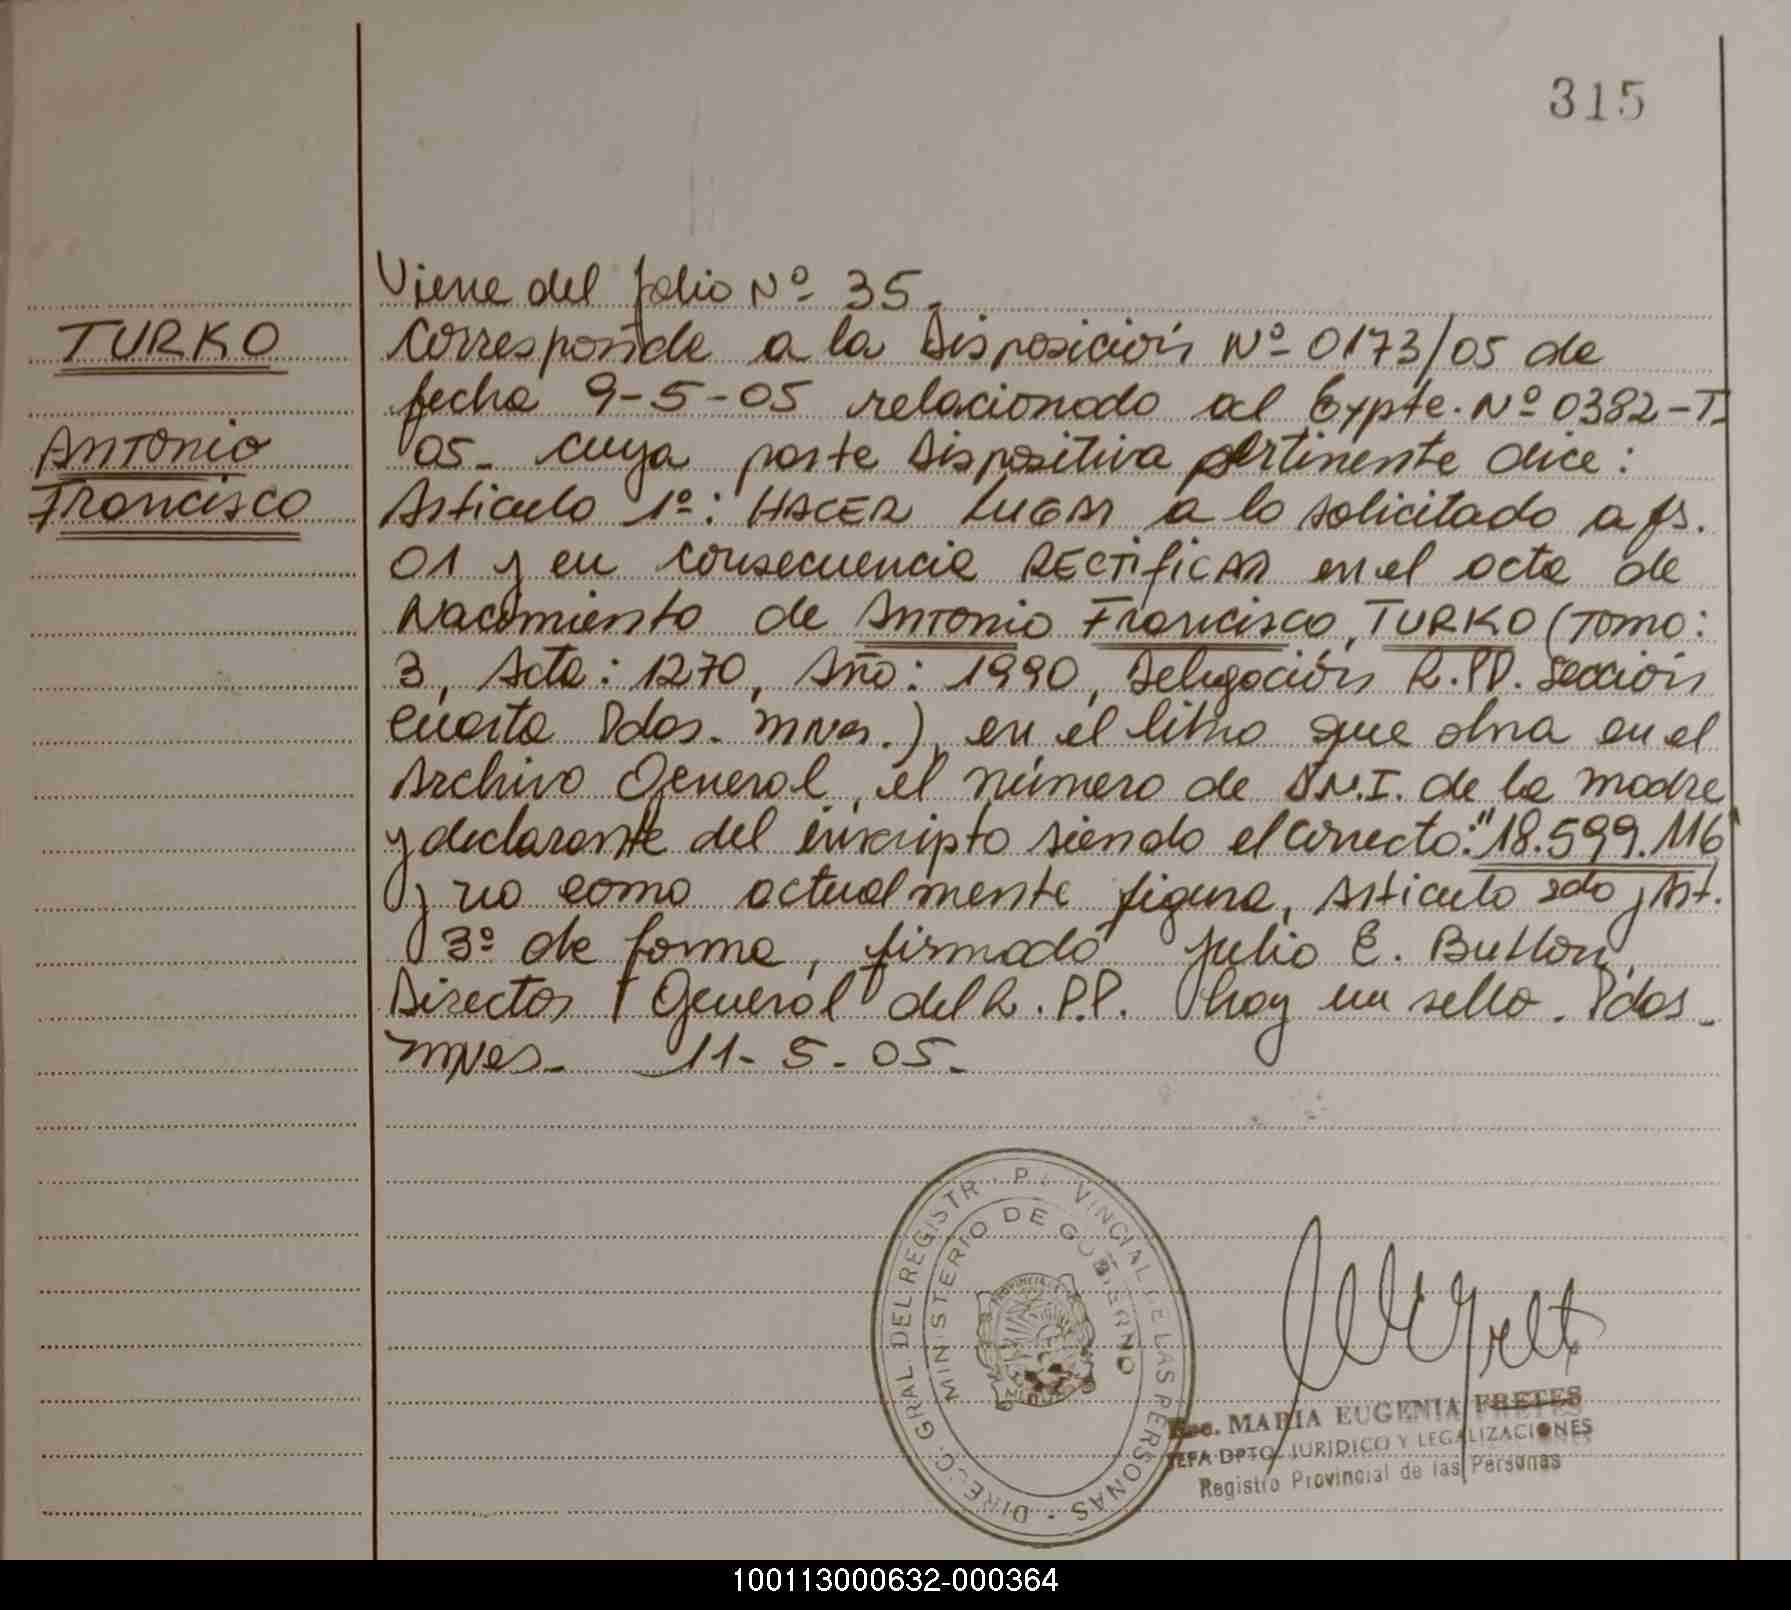 315
Viene del folio Nº 35.
TURKO
Corresponde a la Disposición Nº 0173/05 de
fecha 9-5-05 relacionado al Expte. Nº 0382-T-
Antonio
05- cuya parte Dispositiva pertinente dice:
Francisco
Articulo 1º: HACER LUGAR a lo solicitado a fs.
01 y en consecuencia RECTIFICAR en el acta de
Nacimiento de Antonio Francisco, TURKO (Tomo:
3, Acta: 1270, Año: 1990, Delegación R.PP. Sección
Cuarta Pdas. Mnes.), en el libro que obra en el
Archivo General, el número de D.N.I. de la madre
y declarante del inscripto siendo el correcto: "18.599.116
y no como actualmente figura, Articulo 2do y Art.
3º de forma, firmado Julio E.
Director General del R.P.P. hay un sello. Pdas-
Mnes- 11-5-05.-
DIRECC. GRAL. DEL REGISTR PR VINCIAL DE LAS PERSONAS
MINISTERIO DE GOBIERNO
PROVINCIA
Esc. MARIA EUGENIA FRETES
JEFA DPTO. JURIDICO Y LEGALIZACIONES
Registro Provincial de las Personas
100113000632-000364